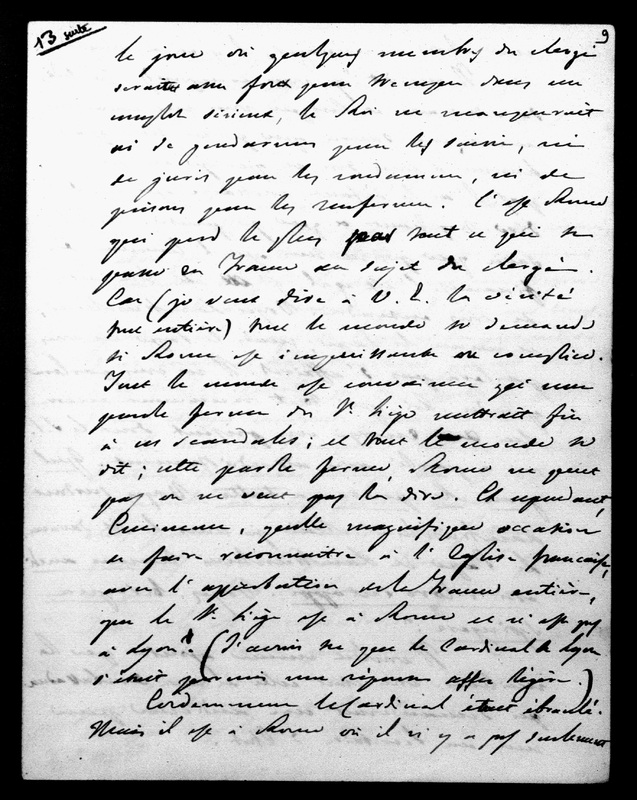 13 suite
9
le jour où quelques membres du clergé
seraient assez fous pour tremper dans un
complot sérieux, le Roi ne manquerait
ni de gendarmes pour les saisir, ni
de juris pour les condamner, ni de
prisons pour les renfermer. C'est Rome
qui perd le plus pas tout ce qui se
passe en France au sujet du clergé.
Car (je veux dire à V. E. la vérité
tout entière) tout le monde se demande
si Rome est impuissante ou complice.
Tout le monde est convaincu qu'une
parole ferme du St. Siége mettrait fin
à ces scandales; et tout le monde se
dit; cette parole ferme, Rome ne peut
pas ou ne veut pas la dire. Et cependant,
Eminence, quelle magnifique occasion
de faire reconnaitre à l'Eglise française,
avec l'approbation de la France entière,
que le St. Siége est à Rome et n'est pas
à Lyon! (J'avais su que le Cardinal de Lyon
s'était permis une réponse assez légère.)
Evidemment le Cardinal était ébranlé.
Mais il est à Rome où il n'y a pas seulement